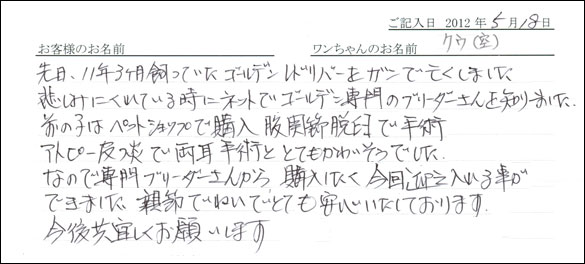 ご記入日 2012年5月18日
お客様のお名前 ワンちゃんのお名前 クウ(空)
先日、11年3ヶ月飼っていたゴールデンレトリバーをガンで亡くしました
悲しみにくれている時にネットでゴールデン専門のブリーダーさんを知りました。
前の子はペットショップで購入 股関節脱臼で手術
アトピー皮フ炎で両耳手術ととてもかわいそうでした。
なので専門ブリーダーさんから購入したく今回迎え入れる事が
できました、親節でねいでとても安心いたしております。
今後共宜しくお願いします